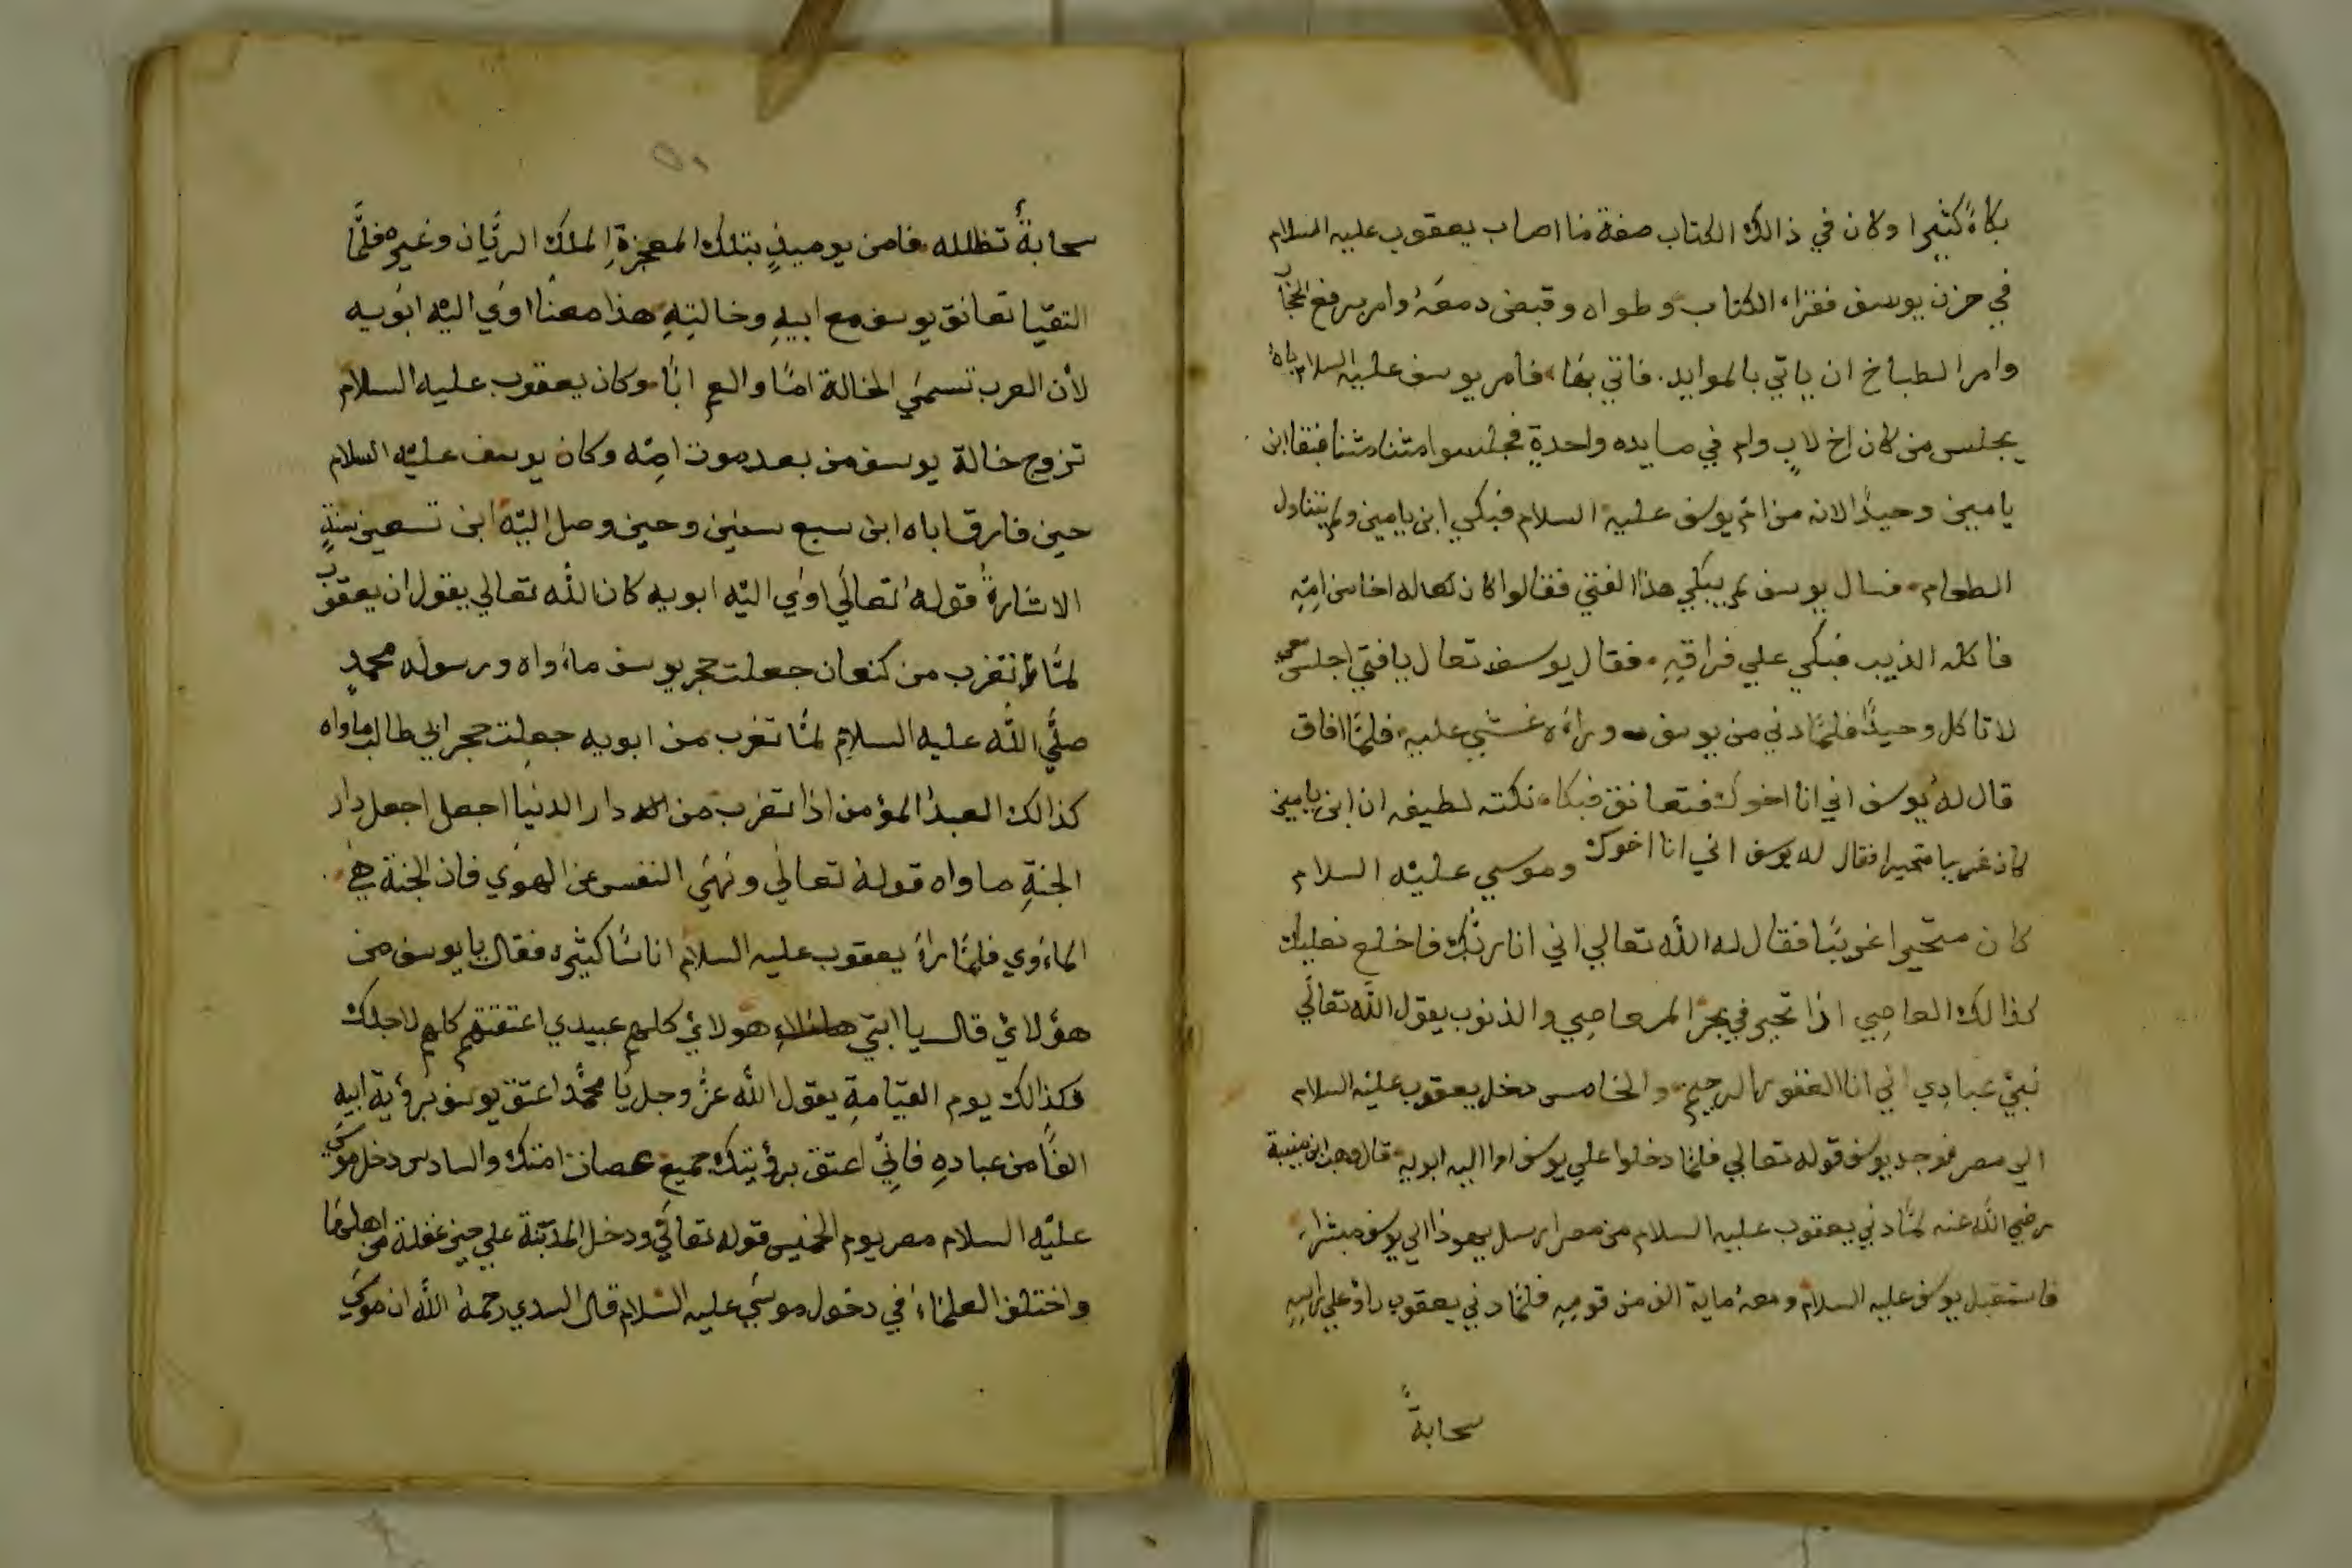 بكاءً كثيرا وكان في ذالك الكتاب صفة ما اصاب يعقوب عليه السلام
في حزن يوسف فقراء الكتاب وطواه وقبض دمعهُ وامر برفع الحجاب
وامر الطباخ ان ياتي بالموايد. فاتي بها فامر يوسف عليه السلام بان
يجلس من كان اخ لابٍ وام في مايده واحدةٍ فجلسوا مثنا مثنا فبقا ابن
يامين وحيدًا لانه من ام يوسف عليه السلام فبكي ابن يامين ولم يتناول
الطعام فسال يوسف لم يبكي هذا الفتي فقالوا كان له اخا من امِّهِ
فاكله الذيب فبكي علي فراقِهِ فقال يوسف تعال يا فتي اجلس معي
لا تاكل وحيدًا فلمّا دني من يوسف وراءه غشي عليه فلمّا افاق
قال لهُ يوسف اني انا اخوك فتعانق فبكا نكته لطيفه ان ابن يامين
كان غريبا متحيرا فقال له يوسف اني انا اخوك وموسي عليه السلام
كان متحيرا غريبًا فقال له الله تعالي اني انا ربُّك فاخلع نعليك
كذالك العاصِي اذا تحير في بحر المعاصِي والذنوب يقول الله تعالَي
نبيْ عبادِي اني انا الغفور الرحيم والخامس دخل يعقوب عليه السلام
الي مصر فوجد يوسف قوله تعالي فلمّا دخلوا علي يوسف اوا اليه ابويه قال وهب ابن منبة
رضي الله عنه لمّا دني يعقوب عليه السلام من مصر ارسل يهوذا الي يوسف مبشراء
فاستقبل يوسف عليه السلام ومعهُ ماية الف من قومِهِ فلمّا دني يعقوب راءَ علي راسِهِ
سحابةً
سحابةً تظلله فامن يوميذٍ بتلك المعجزةِ الملك الريّان وغيره فلمّا
التقيا تعانق يوسف مع ابيهِ وخالتِهِ هذا معنا اوَي اليْه ابوَيه
لأن العرب تسمي الخالة امًا والعم ابًا وكان يعقوب عليه السلام
تزوج خالة يوسف من بعد موت امِّه وكان يوسف عليْه السلام
حين فارق اباه ابن سبع سنين وحين وصل اليْه ابن تسعين سنةٍ
الاشارةُ قولهُ تعالَي اوَي اليْه ابويه كان الله تعالي يقول ان يعقوب
لمّا تغرب من كنعان جعلت حجر يوسف ماءواه ورسوله محمدٍ
صلَّي الله عليه السلامِ لمّا تغرب من ابويه جعلت حجر ابي طالب ماواه
كذالك العبدُ المؤمن اذا تغرب من دار الدنيا اجعل اجعل دار
الجنةِ ماواه قولهُ تعالَي ونهَي النفس عن الهوَي فان الجنة هي
الماءوي فلمّا راءَ يعقوب عليه السلام اناسًا كثيره فقال يا يوسف من
هؤلائ قال يا ابتي هولائ كلهم عبيدي اعتقتهم كلهم لاجلك
فكذالك يوم القيامةِ يقول الله عزَّ وجل يا محمَّد اعتق يوسف برؤية ابيهِ
الفًا من عبادهِ فانِّي اعتق برؤيتك جميع عصات امتك والسادس دخل موسَي
عليْه السلام مصر يوم الخميس قوله تعالَي ودخل المدينة علي حين غفلة من اهلها
واختلف العلماءُ في دخول موسَي عليه السلام قال السدي رحمهُ الله ان موسَي